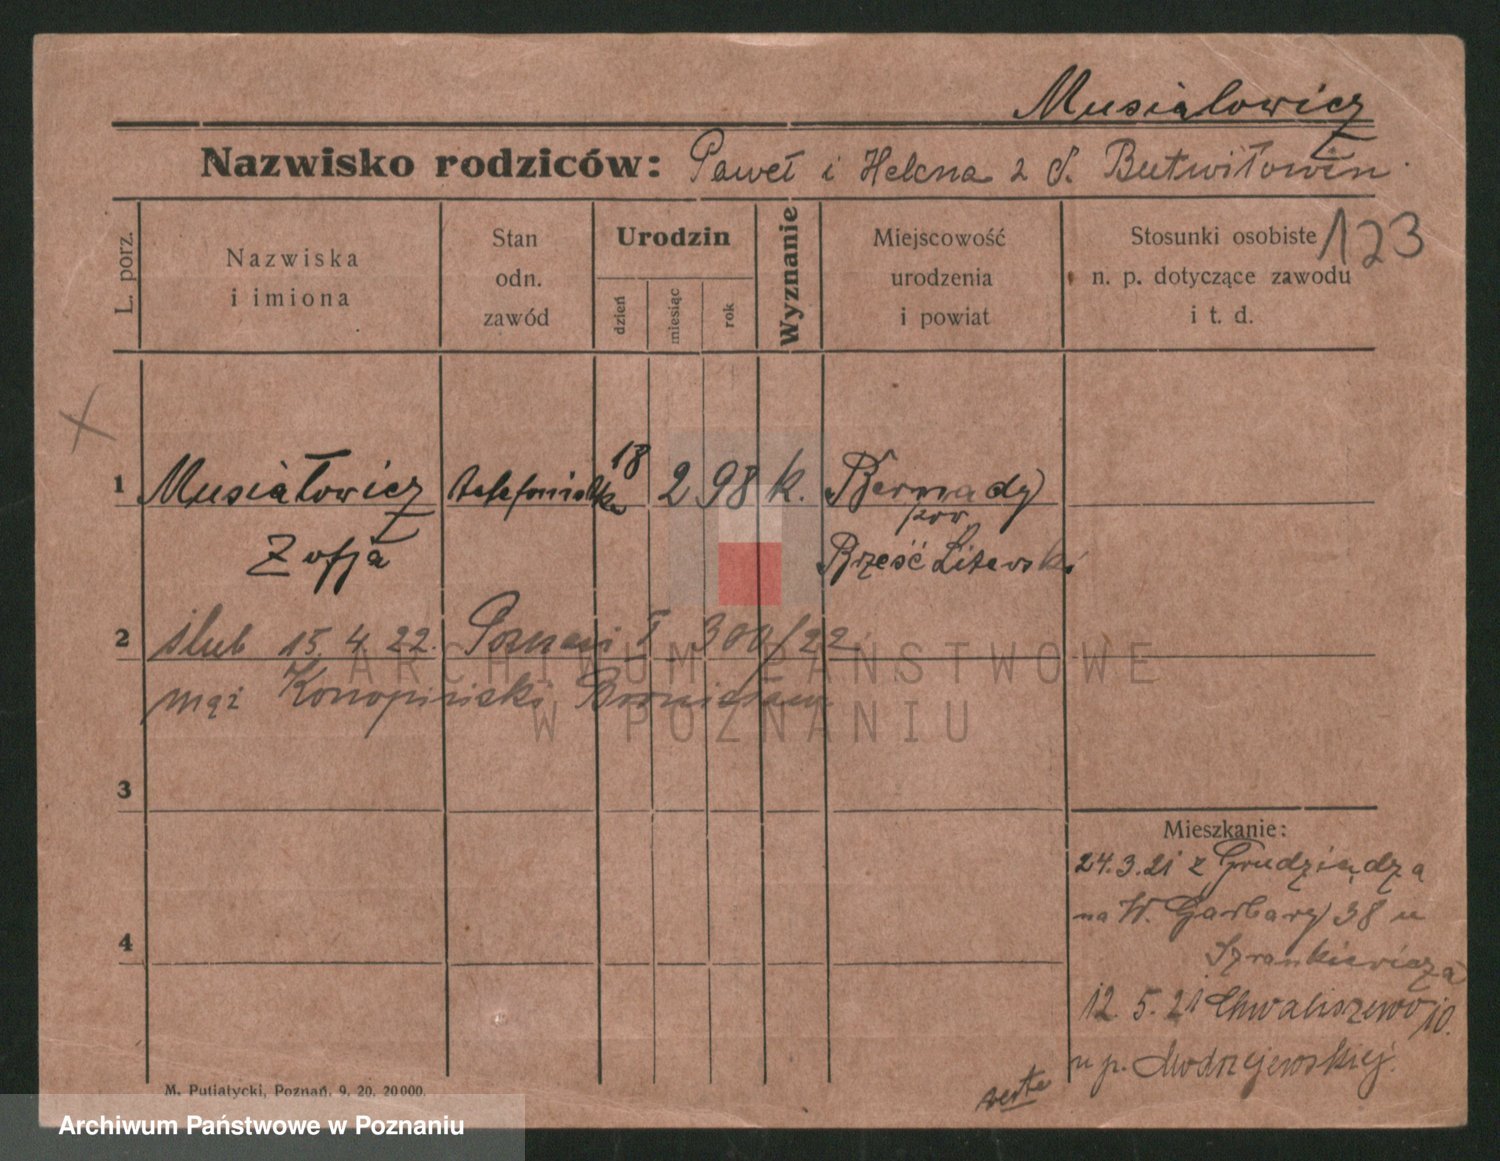 Musiałowicz
Nazwisko rodziców: Paweł i Helena z d.
123
L. porz.
Nazwiska
i imiona
Stan
odn.
zawód
Urodzin
dzień
miesiąc
rok
Wyznanie
Miejscowość
urodzenia
i powiat
Stosunki osobiste
n. p. dotyczące zawodu
i t. d.
1 Musiałowicz telefonistka 18 2 98 k. Bernady
pow.
Zofja Brześć Litewski
2 ślub 15. 4. 22. Poznań I 300/22
mąż Konopiński Bronisław
3
4
Mieszkanie:
24.3.21 z Grudziądza
na W. Garbary 38 u
Szrankiewicza
12. 5. 21 Chwaliszewo 10.
u p. Modrzejewskiej.
verte
M. Putiatycki, Poznań, 9. 20. 20000.
ARCHIWUM PAŃSTWOWE
W POZNANIU
Archiwum Państwowe w Poznaniu